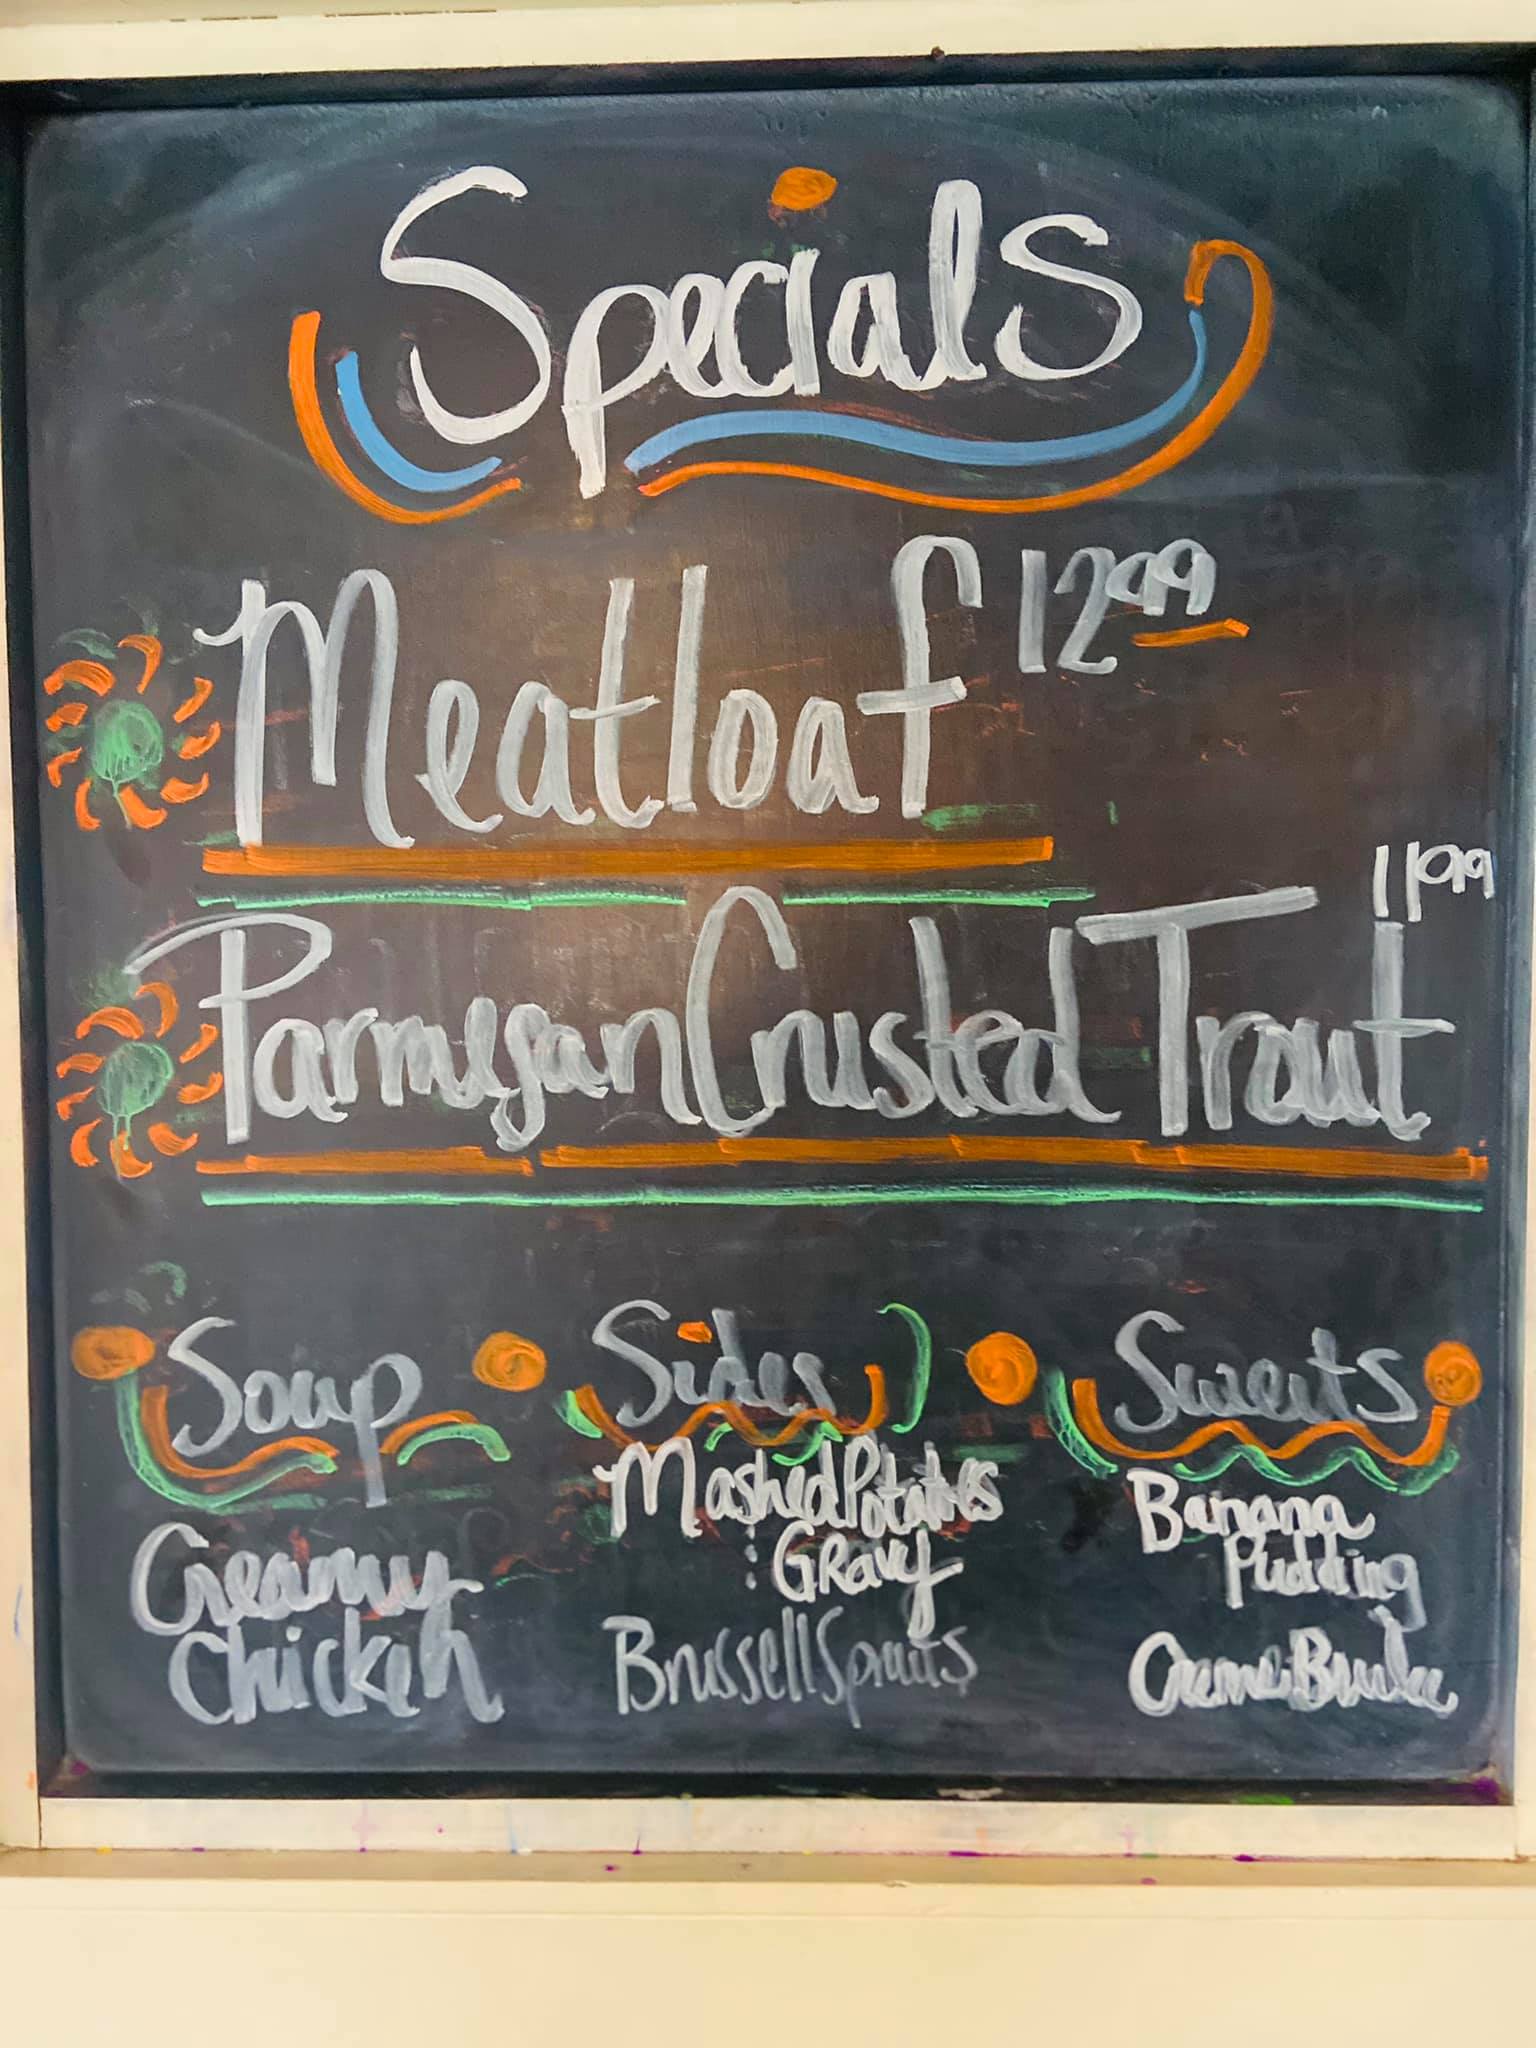 Specials
Meatloaf 12.99
Parmesan Crusted Trout 11.99
Soup
Creamy
Chicken
Sides
Mashed Potatoes
: Gravy
Brussell Sprouts
Sweets
Banana
Pudding
Creme Brulee